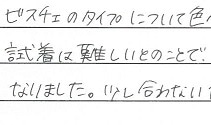 ビスチェのタイプについて色
試着は難しいとのことで
なりました。少し合わない